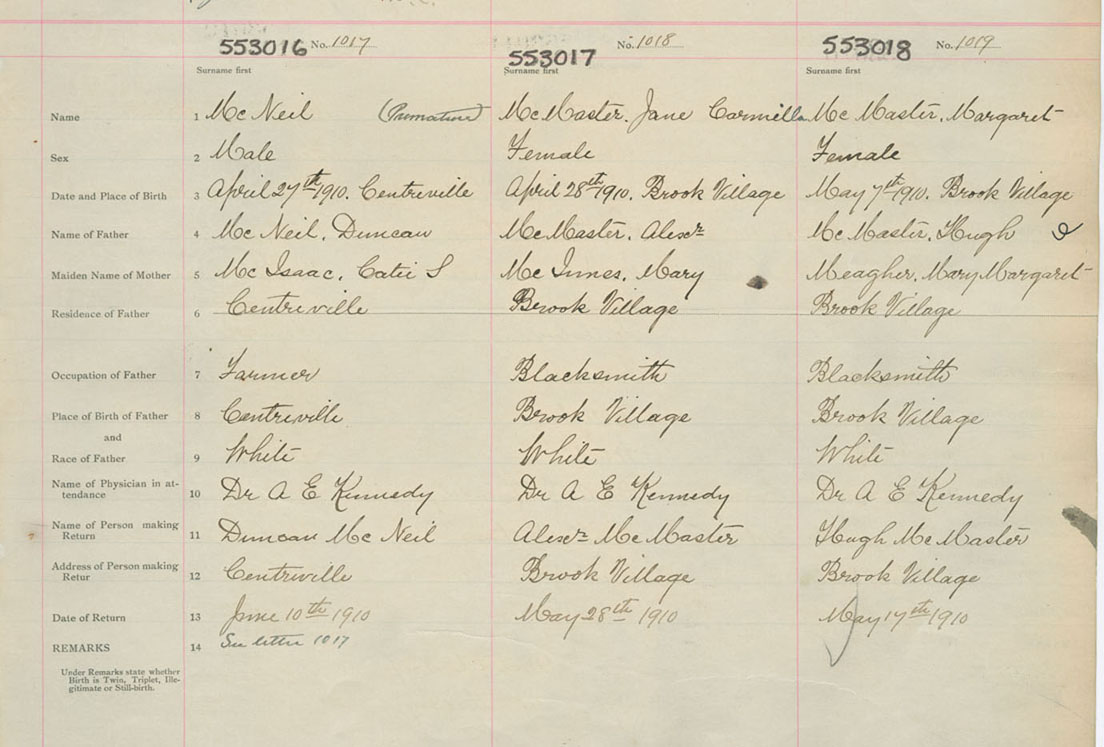 553016 No. 1017 553017 No. 1018 553018 No. 1019
Surname first Surname first Surname first
Name 1 Mc Neil (Premature) McMaster. Jane Carmilla Mc Master. Margaret
Sex 2 Male Female Female
Date and Place of Birth 3 April 27th 1910. Centreville April 28th 1910. Brook Village May 7th 1910. Brook Village
Name of Father 4 Mc Neil. Duncan McMaster. Alexr Mc Master. Hugh
Maiden Name of Mother 5 Mc Isaac. Catie S Mc Innes. Mary Meagher. Mary Margaret
Residence of Father 6 Centreville Brook Village Brook Village
Occupation of Father 7 Farmer Blacksmith Blacksmith
Place of Birth of Father 8 Centreville Brook Village Brook Village
and
Race of Father 9 White White White
Name of Physician in at-
tendance 10 Dr A E Kennedy Dr A E Kennedy Dr A E Kennedy
Name of Person making
Return 11 Duncan Mc Neil Alexr Mc Master Hugh McMaster
Address of Person making
Retur 12 Centreville Brook Village Brook Village
Date of Return 13 June 10th 1910 May 28th 1910 May 17th 1910
REMARKS 14 See letter 1017
Under Remarks state whether
Birth is Twin, Triplet, Ille-
gitimate or Still-birth.